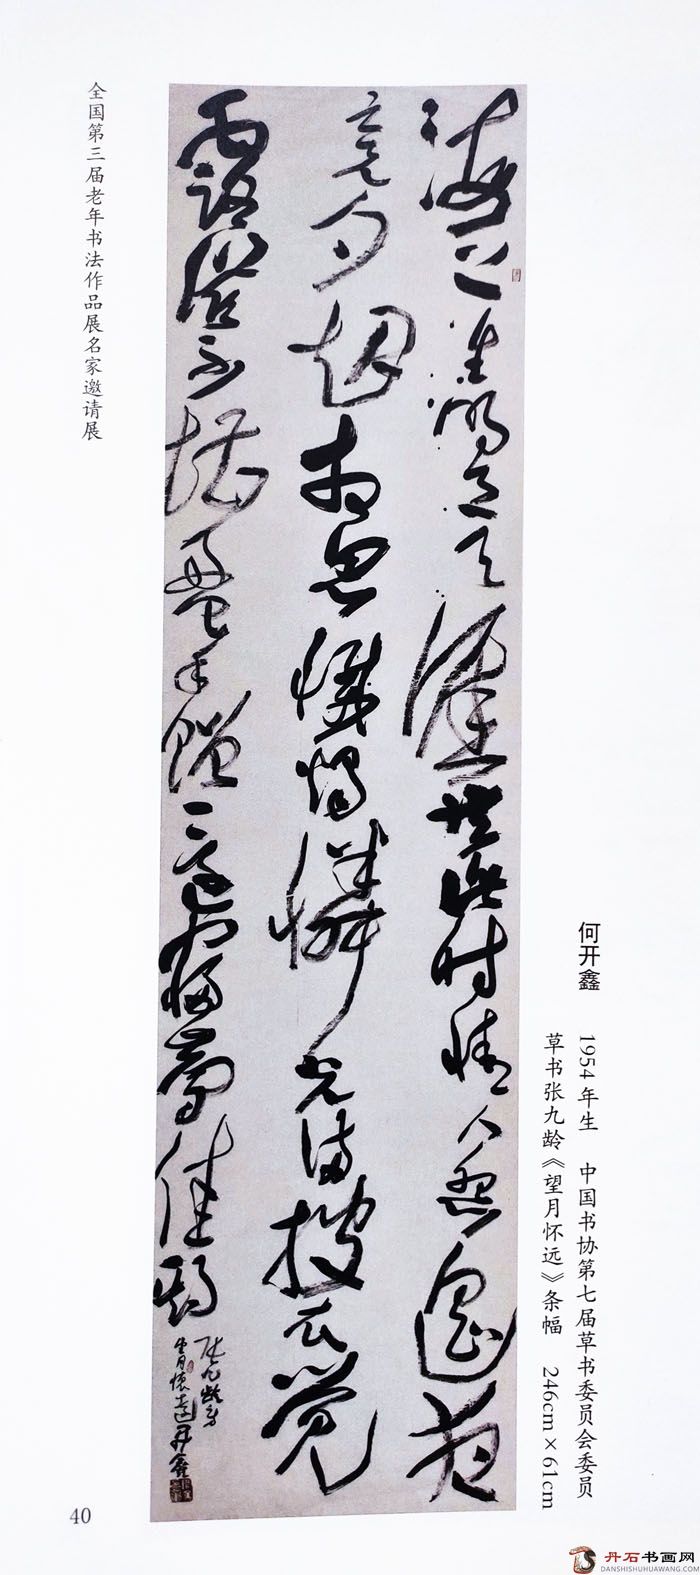 何开鑫 1954年生 中国书协第七届草书委员会委员
草书张九龄《望月怀远》条幅 246cm×61cm
海上生明月天涯共此時情人怨遙夜
竟夕起相思滅燭憐光滿披衣覺
露滋不堪盈手贈還寢夢佳期
張九齡
望月懷遠開鑫
全国第三届老年书法作品展名家邀请展
40
丹石书画网
DANSHISHUHUAWANG.COM